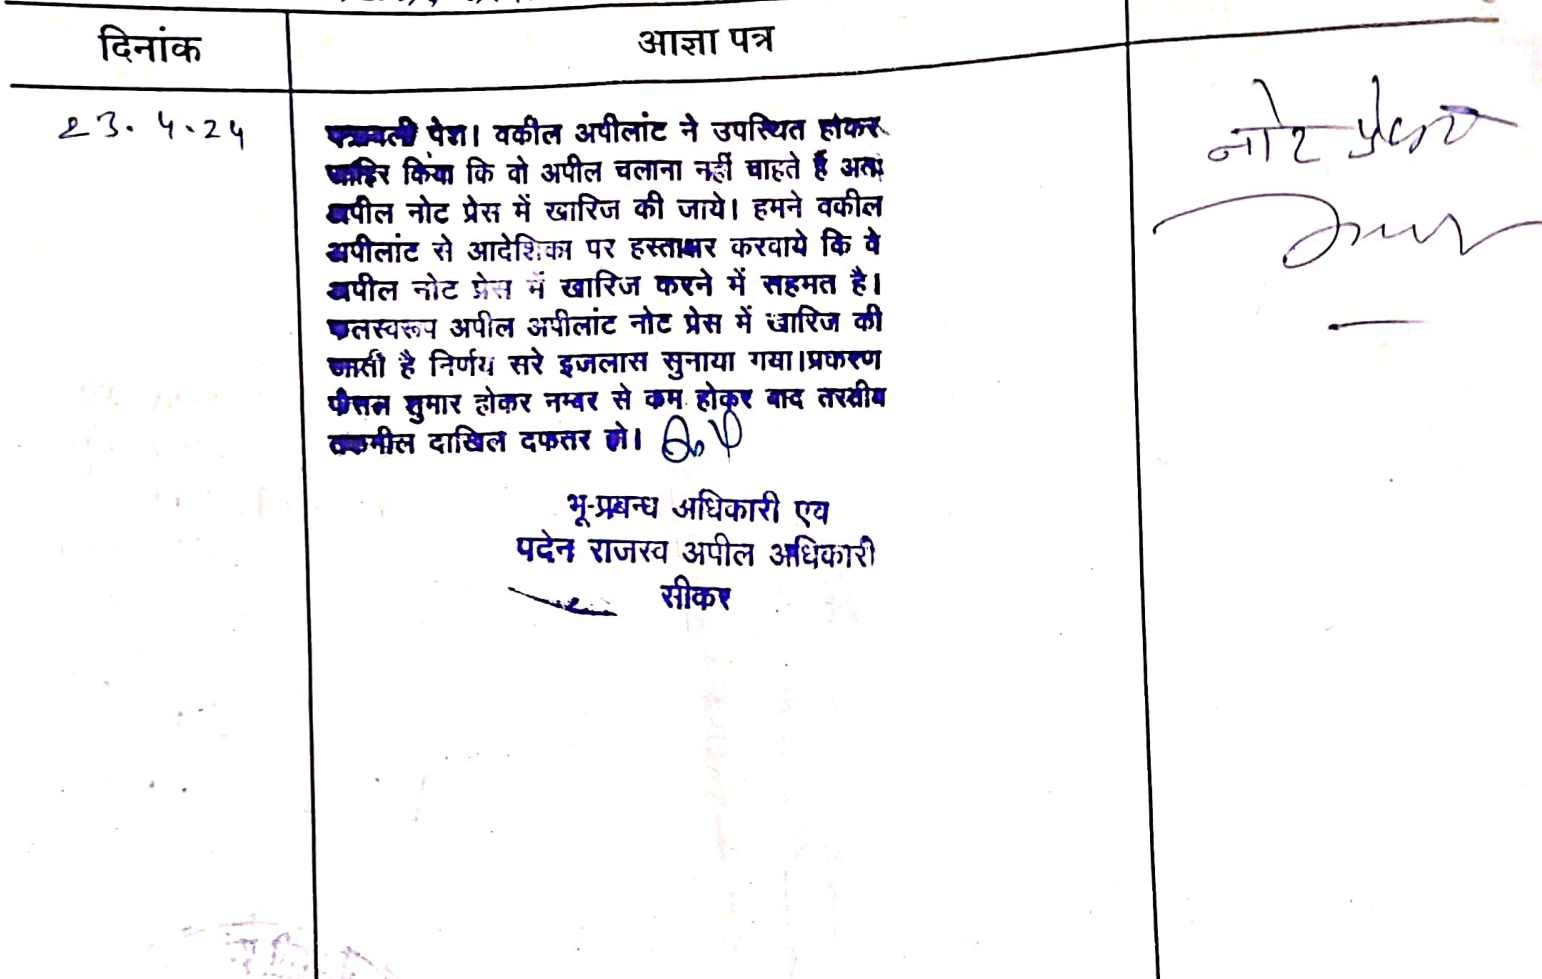 दिनांक
आज्ञा पत्र
23.4.24
पत्रावली पेश। वकील अपीलांट ने उपस्थित होकर
जाहिर किया कि वो अपील चलाना नहीं चाहते हैं अतः
अपील नोट प्रेस में खारिज की जाये। हमने वकील
अपीलांट से आदेशिका पर हस्ताक्षर करवाये कि वे
अपील नोट प्रेस में खारिज करने में सहमत है।
फलस्वरूप अपील अपीलांट नोट प्रेस में खारिज की
जाती है निर्णय सरे इजलास सुनाया गया।प्रकरण
फैसल शुमार होकर नम्बर से कम होकर बाद तरतीब
तकमील दाखिल दफतर हो।
भू-प्रबन्ध अधिकारी एव
पदेन राजस्व अपील अधिकारी
सीकर
नोट प्रेस